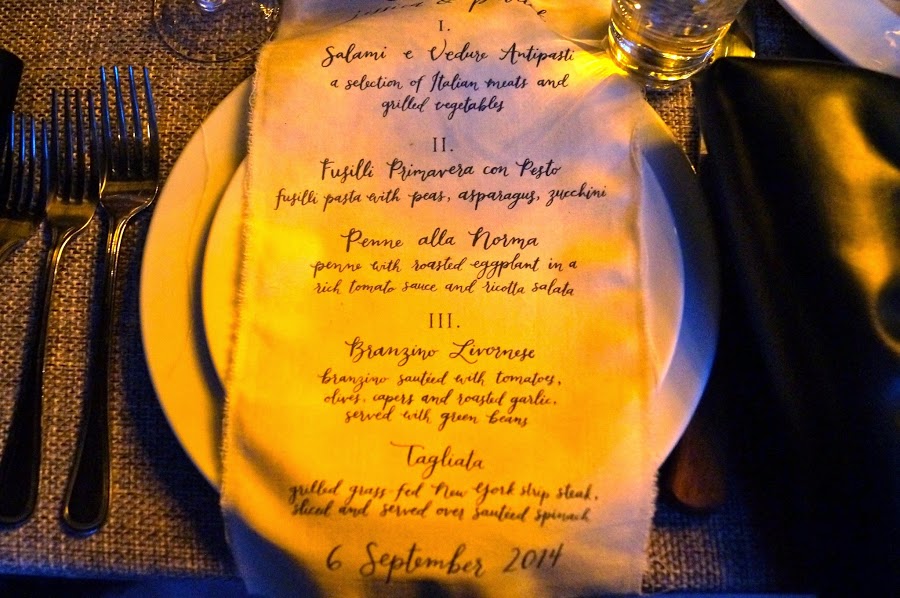 I.
Salami e Vedure Antipasti
a selection of Italian meats and
grilled vegetables
II.
Fusilli Primavera con Pesto
fusilli pasta with peas, asparagus, zucchini
Penne alla Norma
penne with roasted eggplant in a
rich tomato sauce and ricotta salata
III.
Branzino Livornese
branzino sautéed with tomatoes,
olives, capers and roasted garlic,
served with green beans
Tagliata
grilled grass-fed New York strip steak,
sliced and served over sautéed spinach
6 September 2014